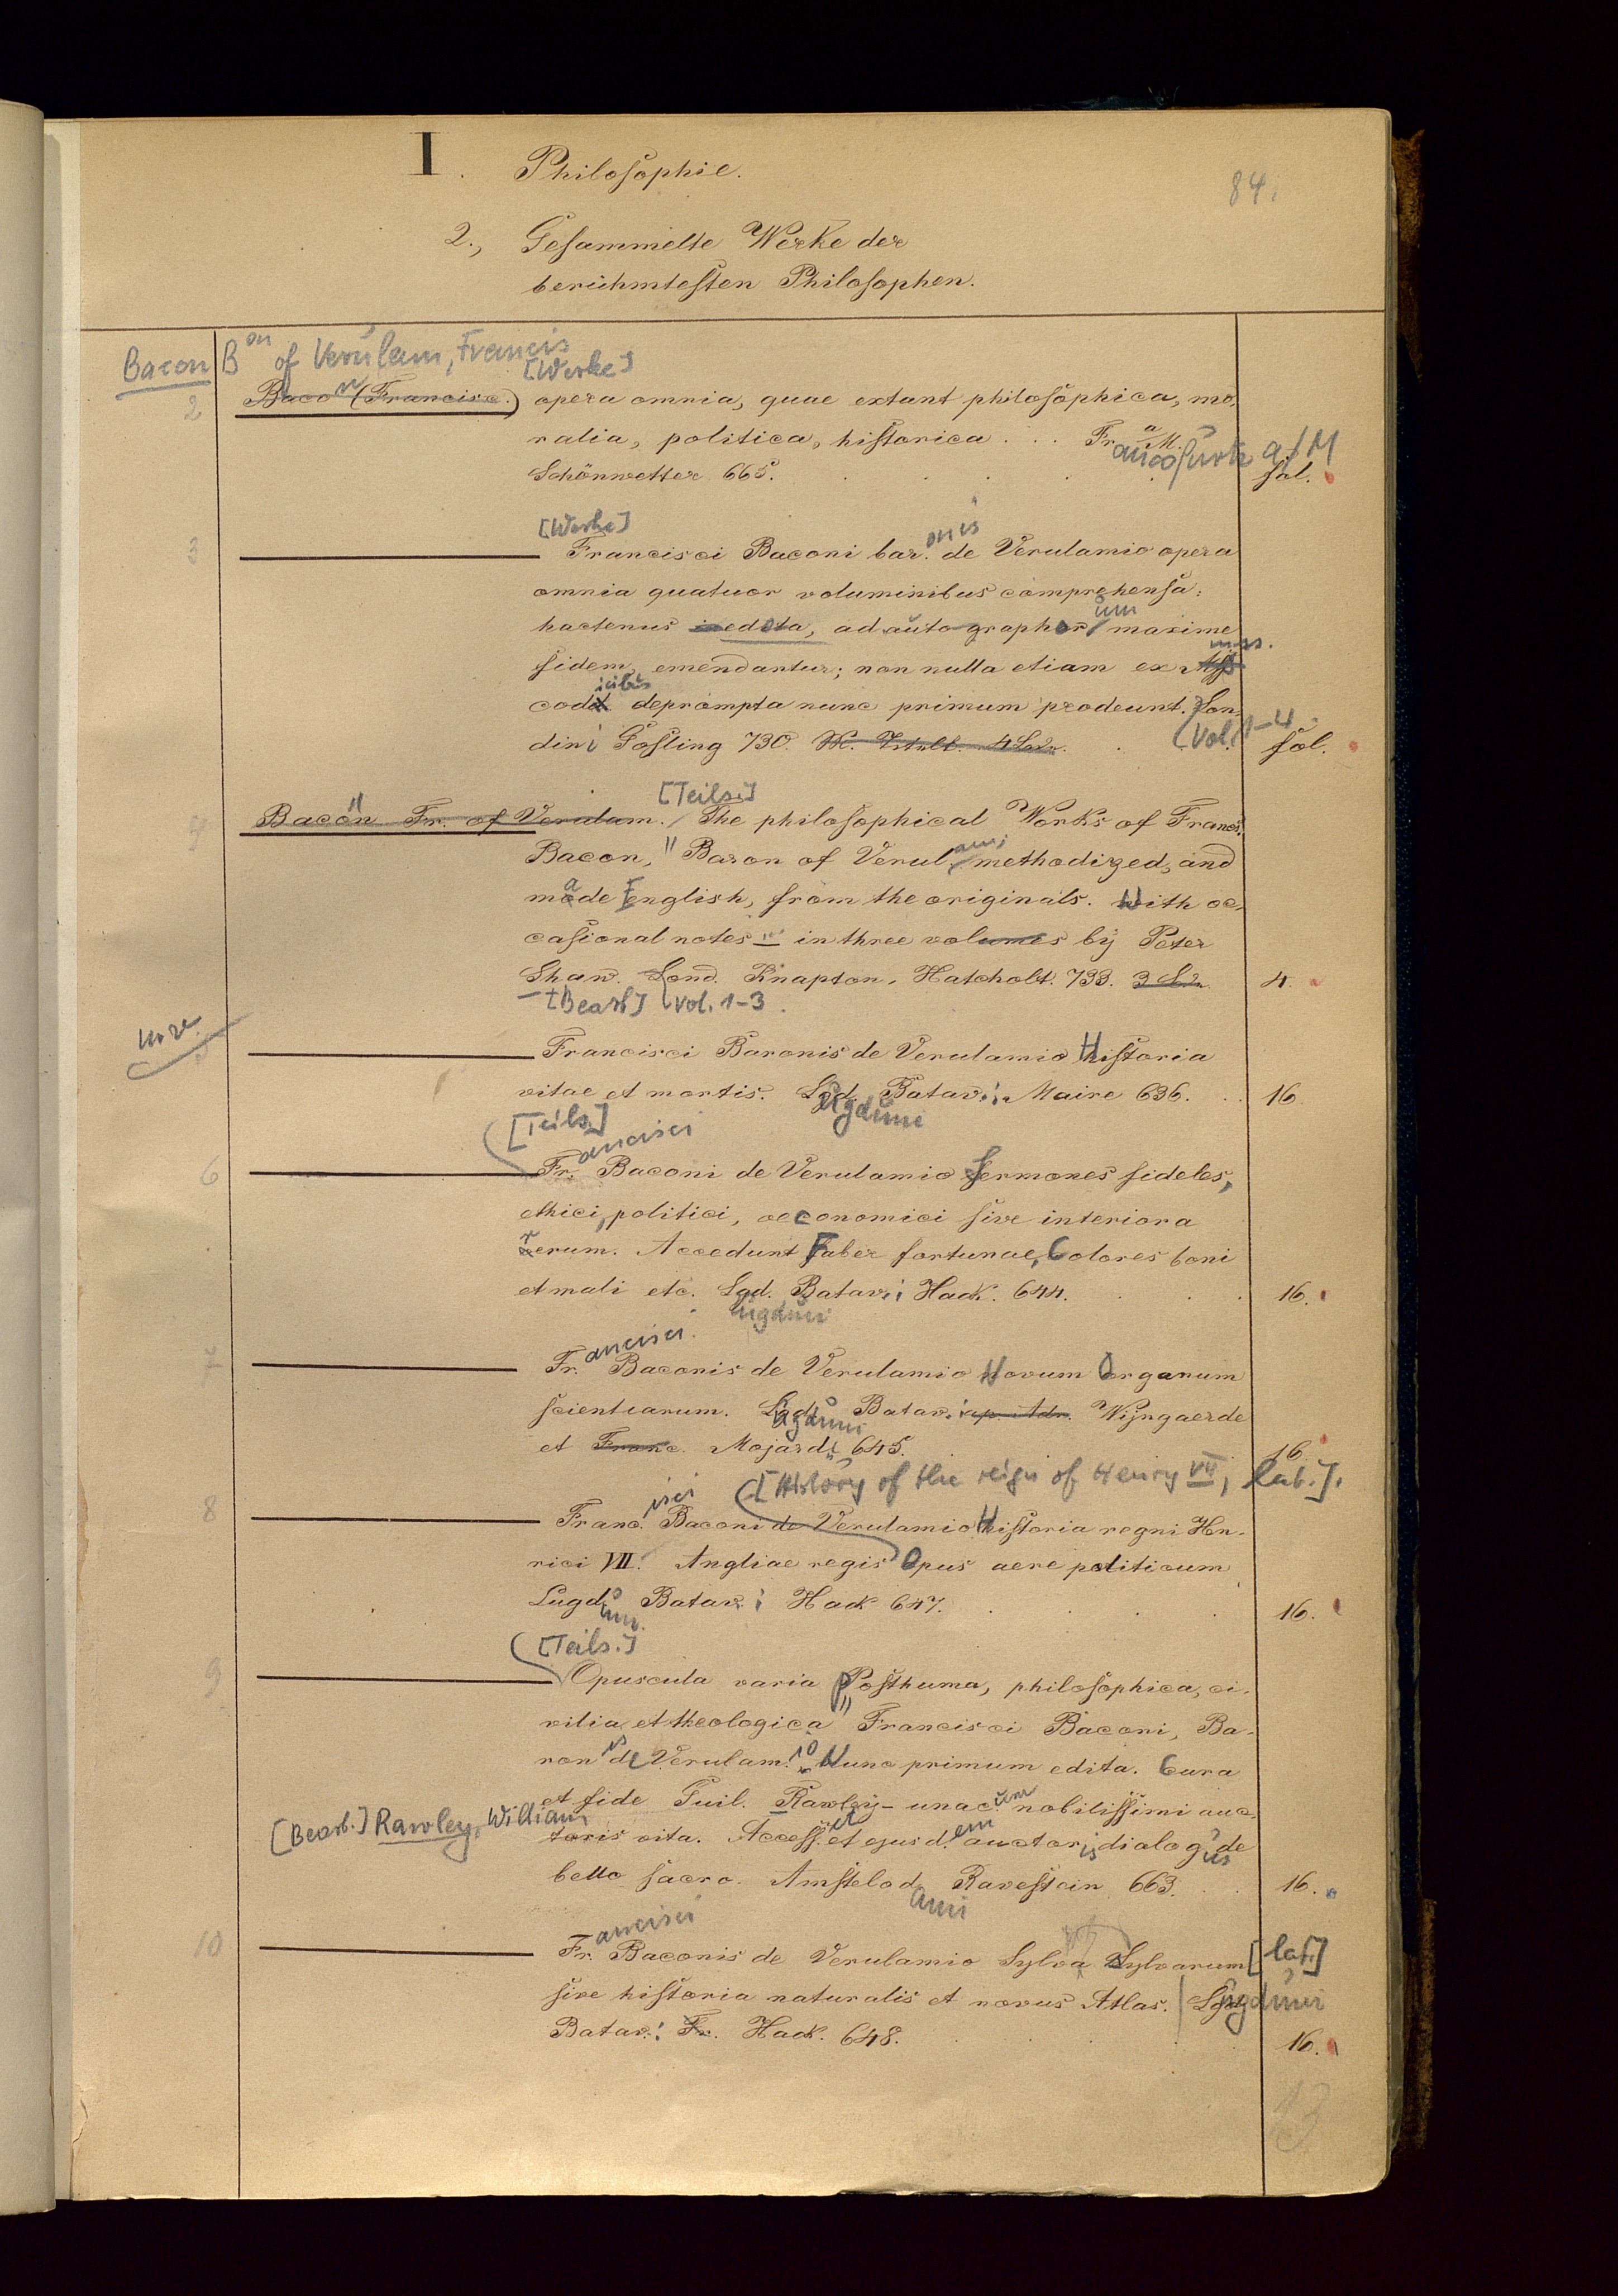 I. Philosophie.
84.
2., Gesammelte Werke der
berühmtesten Philosophen.
Bacon Bon of Verulam, Francis
[Werke]
2 Bacon (Francisc.) opera omnia, quae extant philosophica, mo-
ralia, politica, historica . . . Fr. a M.
ancofurti a/M
Schönwetter 665. fol.
[Werke]
onis
3 Francisci Baconi bar. de Verulamio opera
omnia quatuor voluminibus comprehensa:
hactenus edita, ad autographor maxime
um
fidem, emendantur; non nulla etiam ex
mss.
icibus
codd. deprompta nunc primum prodeunt. Lon-
dini Gosling 730. (Vol. 1-4. fol.
[Teils.]
4 Bacon Fr. of Verulam. The philosophical Works of Francis
Bacon, Baron of Verul. methodized, and
am;
made English, from the originals. With oc-
casional notes in three volumes by Peter
Shaw. Lond. Knapton, Hatcholt. 733. 3 4.
[Bearb.] Vol. 1-3.
5 Francisci Baronis de Verulamio Historia
vitae et mortis. Lgd. Batav. Maire 636. . . 16.
ugduni
[Teils.]
ancisci
6 Fr. Baconi de Verulamio Sermones fideles,
ethici, politici, oeconomici sive interiora
rerum. Accedunt Faber fortunae, Colores boni
et mali etc. Lgd. Batav. Hack. 644. 16.
ugduni
ancisci
7 Fr. Baconis de Verulamio Novum Organum
scientiarum. Lgd. Batav. ap. Adr. Wijngaerde
ugduni
et Franc. Mojardi 645. 16.
[History of the reign of Henry VII, lat.].
isci
8 Franc. Baconi de Verulamio Historia regni Hen-
rici VII. Angliae regis Opus aere politicum
Lugd. Batav. Hack 647. 16.
uni
[Teils.]
9 Opuscula varia Posthuma, philosophica, ci-
vilia, et theologica Francisci Baconi, Ba-
ronis de Verulamio Nunc primum edita. Cura
et fide Guil. Rawley unac. nobilissimi auc-
um
[Bearb.] Rawley, William
toris vita. Access. et ejusd. auctoris dialog. de
it em us
bello sacro. Amstelod. Ravestein 663. . . 16.
ami
ancisci
10 Fr. Baconis de Verulamio Sylva Sylvarum [lat.]
sive historia naturalis et novus Atlas. Lgd.
ugduni
Batav. Fr. Hack. 648. 16.
13